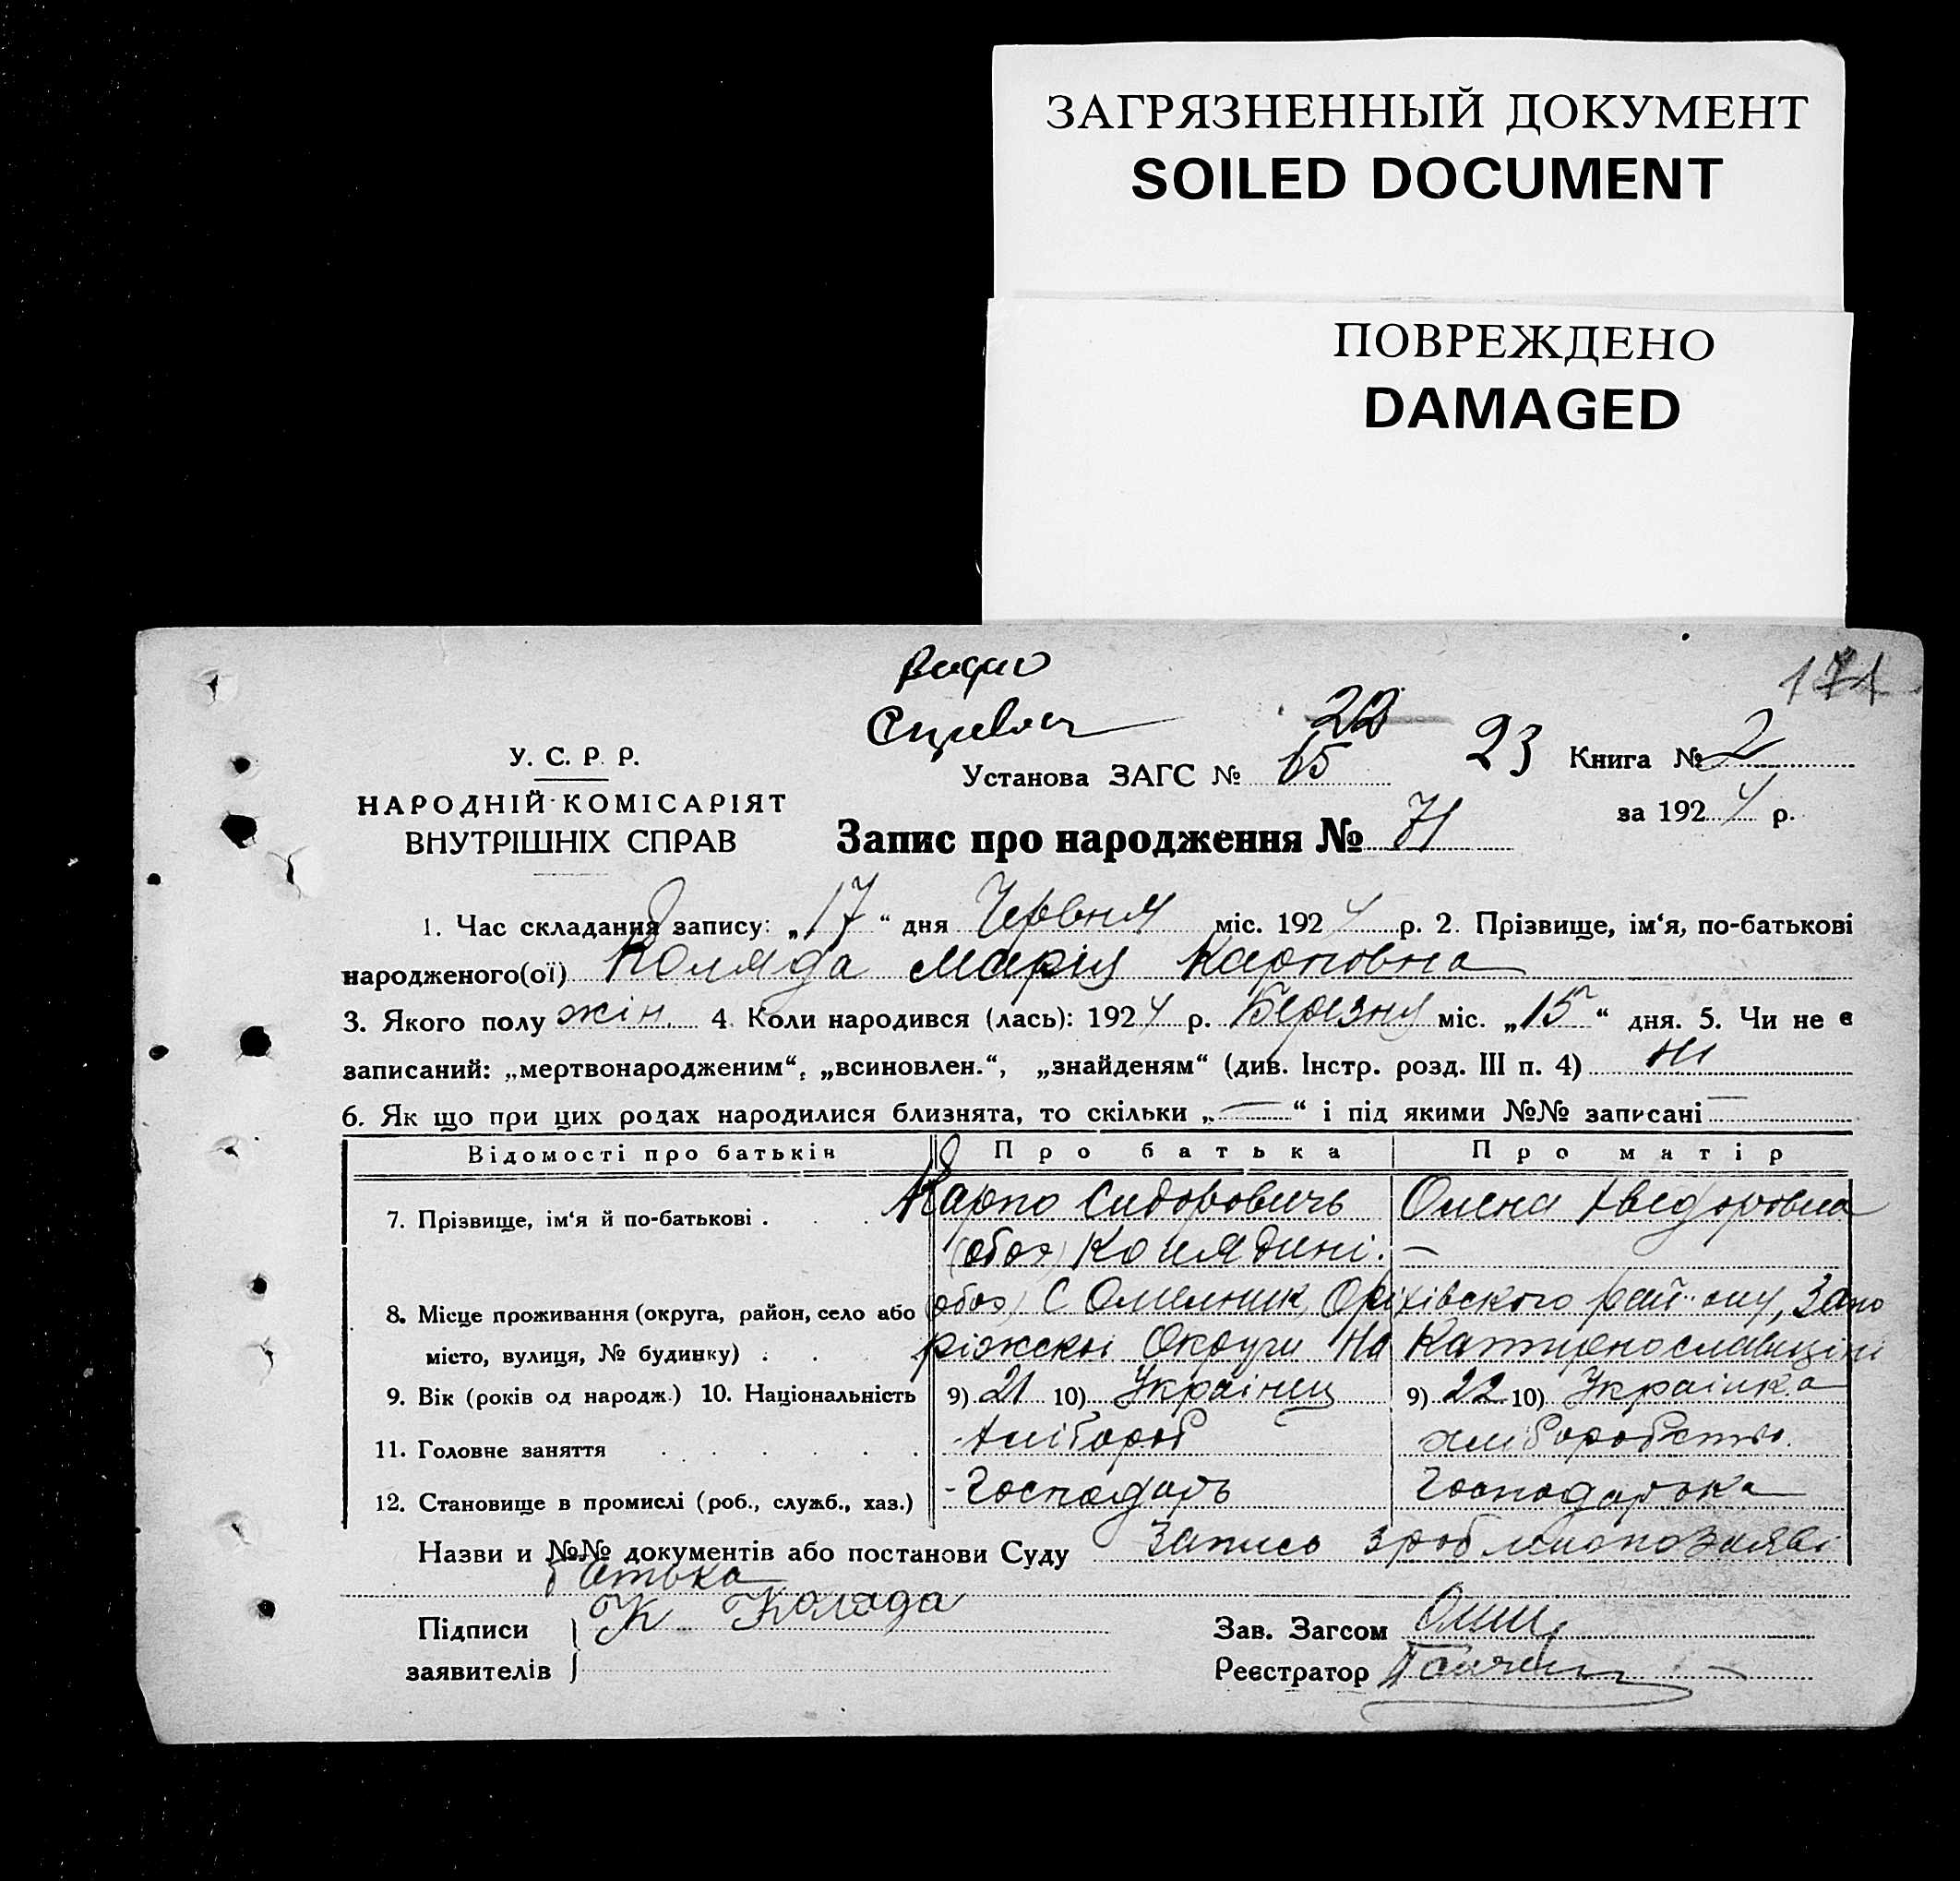 ЗАГРЯЗНЕННЫЙ ДОКУМЕНТ
SOILED DOCUMENT
ПОВРЕЖДЕНО
DAMAGED
171
22
У. С. Р. Р.
НАРОДНІЙ КОМІСАРІЯТ
ВНУТРІШНІХ СПРАВ
Установа ЗАГС № 15 23 Книга № 2
за 1924 р.
Запис про народження № 71
1. Час складання запису: „17“ дня Червня міс. 1924 р. 2. Прізвище, ім‘я, по-батькові
народженого(ої) Коляда Марія Карповна
3. Якого полу жін. 4. Коли народився (лась): 1924 р. Березня міс. „15“ дня. 5. Чи не є
записаний: „мертвонародженим“, „всиновлен.“, „знайденям“ (див. Інстр. розд. III п. 4) ні
6. Як що при цих родах народилися близнята, то скільки „—“ і під якими №№ записані —
Відомості про батьків Про батька Про матір
7. Прізвище, ім‘я й по-батькові . . . Карпо Сидоровичь Олена Хведоровна
(обоє) Колядині. —
8. Місце проживання (округа, район, село або (обоє) С Омельник, Оріхівского район у, Запо
місто, вулиця, № будинку) . . ріжскоі Округи На Катиринославщіні
9. Вік (років од народж.) 10. Національність 9) 21 10) Украінец 9) 22 10) Украінка
11. Головне заняття . . . . . . Хлібороб хліборобство.
12. Становище в промислі (роб., служб., хаз.) - Господарь Господарька
Назви и №№ документів або постанови Суду Запись зроблено по заяві
батька
Підписи К Коляда Зав. Загсом
заявителів Реєстратор